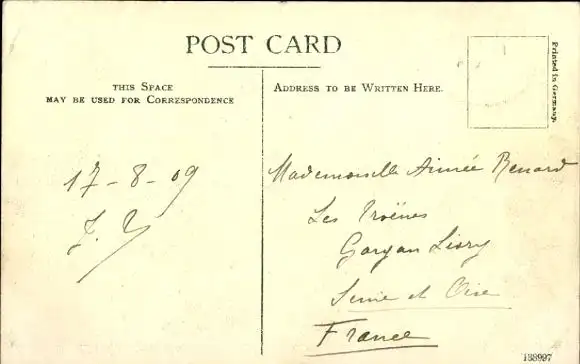 POST CARD
THIS SPACE
MAY BE USED FOR CORRESPONDENCE
ADDRESS TO BE WRITTEN HERE.
Printed in Germany.
17-8-09
Mademoiselle Aimée Renard
Les Troënes
Gargan Livry
Seine et Oise
France
138997